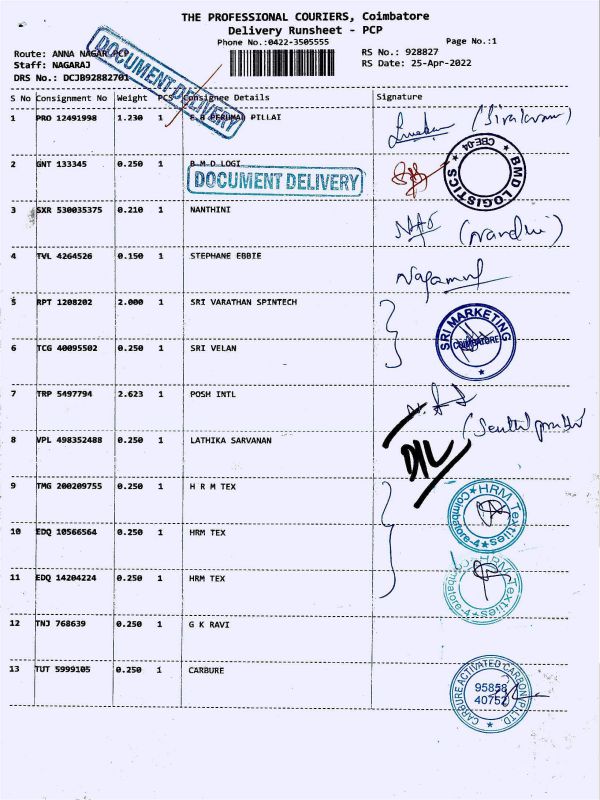 THE PROFESSIONAL COURIERS, Coimbatore
Delivery Runsheet - PCP
Phone No.:0422-3505555
Page No.:1
Route: ANNA NAGAR PCP
RS No.: 928827
Staff: NAGARAJ
RS Date: 25-Apr-2022
DRS No.: DCJB92882701
DOCUMENT DELIVERY
S No Consignment No Weight PCS Consignee Details Signature
1 PRO 12491998 1.230 1 E B PERUMAL PILLAI
2 GNT 133345 0.250 1 B M D LOGI
DOCUMENT DELIVERY
BMD LOGISTICS
CBE-04
3 SXR 530035375 0.210 1 NANTHINI
(Nandhi)
4 TVL 4264526 0.150 1 STEPHANE EBBIE
5 RPT 1208202 2.000 1 SRI VARATHAN SPINTECH
SRI MARKETING
COIMBATORE
6 TCG 40095502 0.250 1 SRI VELAN
7 TRP 5497794 2.623 1 POSH INTL
8 VPL 498352488 0.250 1 LATHIKA SARVANAN
D/L
9 TMG 200209755 0.250 1 H R M TEX
HRM Textiles
Coimbatore-4
10 EDQ 10566564 0.250 1 HRM TEX
11 EDQ 14204224 0.250 1 HRM TEX
HRM Textiles
Coimbatore-4
12 TNJ 768639 0.250 1 G K RAVI
13 TUT 5999105 0.250 1 CARBURE
CARBURE ACTIVATED CARBON(P)LTD
95858
40752